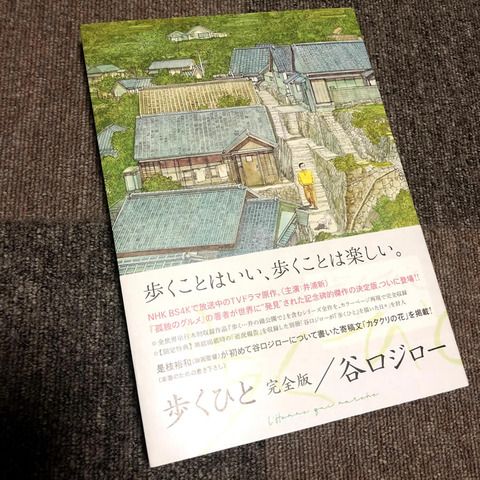 歩くことはいい、歩くことは楽しい。
NHK BS4Kで放送中のTVドラマ原作。(主演:井浦新)
『孤独のグルメ』の著者が世界に“発見”された記念碑的傑作の決定版、ついに登場!!
是枝裕和(映画監督)が初めて谷口ジローについて書いた寄稿文「カタクリの花」を掲載!
(本書のための書き下ろし)
歩くひと 完全版/谷口ジロー
L'Homme qui marche